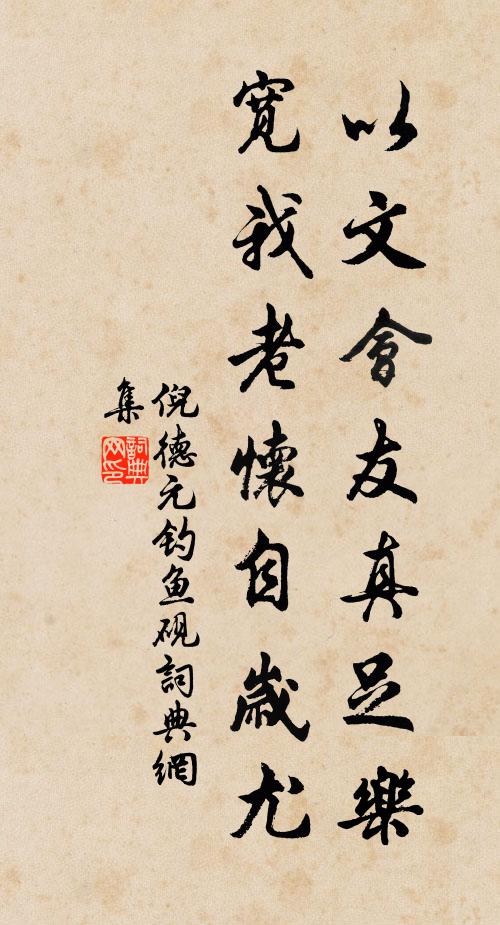 以文會友真足樂
寬我老懷自尤
倪德元钓鱼砚詞典網
集
詞典
网印